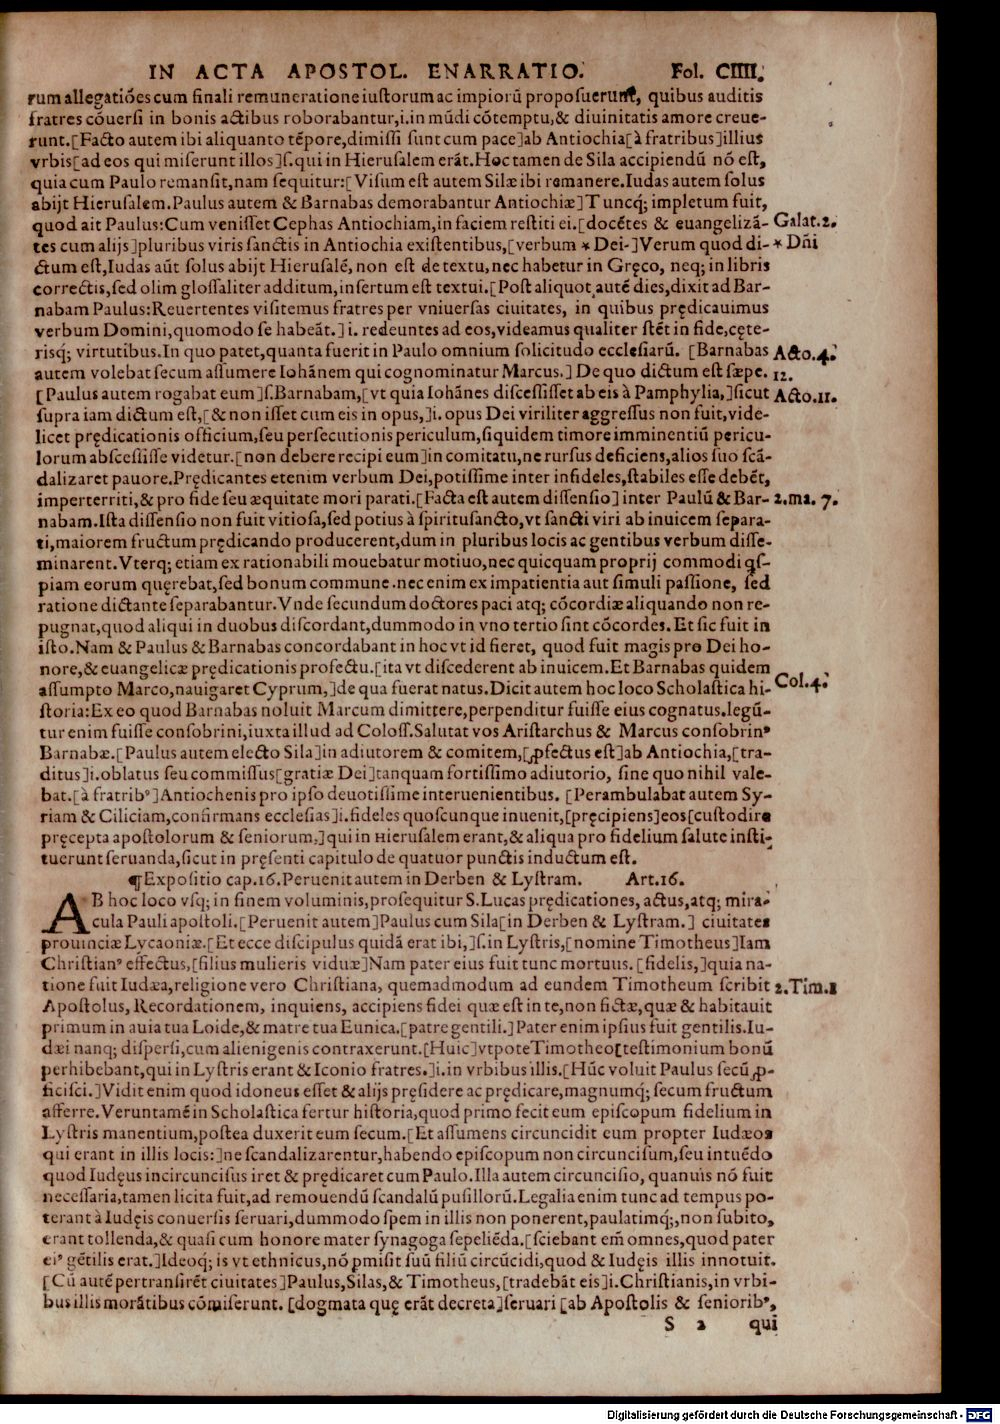 IN ACTA APOSTOL. ENARRATIO. Fol. CIIII.
rum allegatiōes cum finali remuneratione iustorum ac impiorū proposuerunt, quibus auditis
fratres cōuersi in bonis actibus roborabantur,i.in mūdi cōtemptu,& diuinitatis amore creue-
runt.[Facto autem ibi aliquanto tēpore,dimissi sunt cum pace]ab Antiochia[à fratribus]illius
vrbis[ad eos qui miserunt illos]s.qui in Hierusalem erāt.Hoc tamen de Sila accipiendū nō est,
quia cum Paulo remansit,nam sequitur:[Visum est autem Silæ ibi remanere.Iudas autem solus
abijt Hierusalem.Paulus autem & Barnabas demorabantur Antiochiæ]Tuncq; impletum fuit,
quod ait Paulus:Cum venisset Cephas Antiochiam,in faciem restiti ei.[docētes & euangelizā- Galat.2.
tes cum alijs]pluribus viris sanctis in Antiochia existentibus,[verbum * Dei-]Verum quod di- * Dñi
ctum est,Iudas aūt solus abijt Hierusalē, non est de textu,nec habetur in Gręco, neq; in libris
correctis,sed olim glossaliter additum,insertum est textui.[Post aliquot autē dies,dixit ad Bar-
nabam Paulus:Reuertentes visitemus fratres per vniuersas ciuitates, in quibus prędicauimus
verbum Domini,quomodo se habeāt.] i. redeuntes ad eos,videamus qualiter stēt in fide,cęte-
risq; virtutibus.In quo patet,quanta fuerit in Paulo omnium solicitudo ecclesiarū. [Barnabas Acto.4.
autem volebat secum assumere Iohānem qui cognominatur Marcus.] De quo dictum est sæpe. 12.
[Paulus autem rogabat eum]s.Barnabam,[vt quia Iohānes discessisset ab eis à Pamphylia,]sicut Acto.11.
supra iam dictum est,[& non isset cum eis in opus,]i. opus Dei viriliter aggressus non fuit,vide-
licet prędicationis officium,seu persecutionis periculum,siquidem timore imminentiū pericu-
lorum abscessisse videtur.[non debere recipi eum]in comitatu,ne rursus deficiens,alios suo scā-
dalizaret pauore.Prędicantes etenim verbum Dei,potissime inter infideles,stabiles esse debēt,
imperterriti,& pro fide seu æquitate mori parati.[Facta est autem dissensio] inter Paulū & Bar- 2.ma. 7.
nabam.Ista dissensio non fuit vitiosa,sed potius à spiritusancto,vt sancti viri ab inuicem separa-
ti,maiorem fructum prędicando producerent,dum in pluribus locis ac gentibus verbum disse-
minarent.Vterq; etiam ex rationabili mouebatur motiuo,nec quicquam proprij commodi qs-
piam eorum quęrebat,sed bonum commune.nec enim ex impatientia aut simuli passione, sed
ratione dictante separabantur.Vnde secundum doctores paci atq; cōcordiæ aliquando non re-
pugnat,quod aliqui in duobus discordant,dummodo in vno tertio sint cōcordes.Et sic fuit in
isto.Nam & Paulus & Barnabas concordabant in hoc vt id fieret, quod fuit magis pro Dei ho-
nore,& euangelicæ prędicationis profectu.[ita vt discederent ab inuicem.Et Barnabas quidem
assumpto Marco,nauigaret Cyprum,]de qua fuerat natus.Dicit autem hoc loco Scholastica hi- Col.4.
storia:Ex eo quod Barnabas noluit Marcum dimittere,perpenditur fuisse eius cognatus.legū-
tur enim fuisse consobrini,iuxta illud ad Coloss.Salutat vos Aristarchus & Marcus consobrinꝰ
Barnabæ.[Paulus autem electo Sila]in adiutorem & comitem,[ꝓfectus est]ab Antiochia,[tra-
ditus]i.oblatus seu commissus[gratiæ Dei]tanquam fortissimo adiutorio, sine quo nihil vale-
bat.[à fratribꝰ]Antiochenis pro ipso deuotissime interuenientibus. [Perambulabat autem Sy-
riam & Ciliciam,confirmans ecclesias]i.fideles quoscunque inuenit,[pręcipiens]eos[custodire
pręcepta apostolorum & seniorum,]qui in Hierusalem erant,& aliqua pro fidelium salute insti-
tuerunt seruanda,sicut in pręsenti capitulo de quatuor punctis inductum est.
¶Expositio cap.16.Peruenit autem in Derben & Lystram. Art.16.
AB hoc loco vsq; in finem voluminis,prosequitur S.Lucas prędicationes, actus,atq; mira-
cula Pauli apostoli.[Peruenit autem]Paulus cum Sila[in Derben & Lystram.] ciuitates
prouinciæ Lycaoniæ.[Et ecce discipulus quidā erat ibi,]s.in Lystris,[nomine Timotheus]Iam
Christianꝰ effectus,[filius mulieris viduæ]Nam pater eius fuit tunc mortuus. [fidelis,]quia na-
tione fuit Iudæa,religione vero Christiana, quemadmodum ad eundem Timotheum scribit 2.Tim.1
Apostolus, Recordationem, inquiens, accipiens fidei quæ est in te,non fictæ,quæ & habitauit
primum in auia tua Loide,& matre tua Eunica.[patre gentili.]Pater enim ipsius fuit gentilis.Iu-
dæi nanq; dispersi,cum alienigenis contraxerunt.[Huic]vtpote Timotheo[testimonium bonū
perhibebant,qui in Lystris erant & Iconio fratres.]i.in vrbibus illis.[Hūc voluit Paulus secū ꝓ-
ficisci.]Vidit enim quod idoneus esset & alijs pręsidere ac prędicare,magnumq; secum fructum
afferre.Veruntamē in Scholastica fertur historia,quod primo fecit eum episcopum fidelium in
Lystris manentium,postea duxerit eum secum.[Et assumens circuncidit eum propter Iudæos
qui erant in illis locis:]ne scandalizarentur,habendo episcopum non circuncisum,seu intuēdo
quod Iudęus incircuncisus iret & prędicaret cum Paulo.Illa autem circuncisio, quanuis nō fuit
necessaria,tamen licita fuit,ad remouendū scandalū pusillorū.Legalia enim tunc ad tempus po-
terant à Iudęis conuersis seruari,dummodo spem in illis non ponerent,paulatimq;,non subito,
erant tollenda,& quasi cum honore mater synagoga sepeliēda.[sciebant em̄ omnes,quod pater
eiꝰ gētilis erat.]Ideoq; is vt ethnicus,nō ꝑmisit suū filiū circūcidi,quod & Iudęis illis innotuit.
[Cū autē pertransirēt ciuitates]Paulus,Silas,& Timotheus,[tradebāt eis]i.Christianis,in vrbi-
bus illis morātibus cōmiserunt. [dogmata quę erāt decreta]seruari [ab Apostolis & senioribꝰ,
S 2 qui
Digitalisierung gefördert durch die Deutsche Forschungsgemeinschaft - DFG